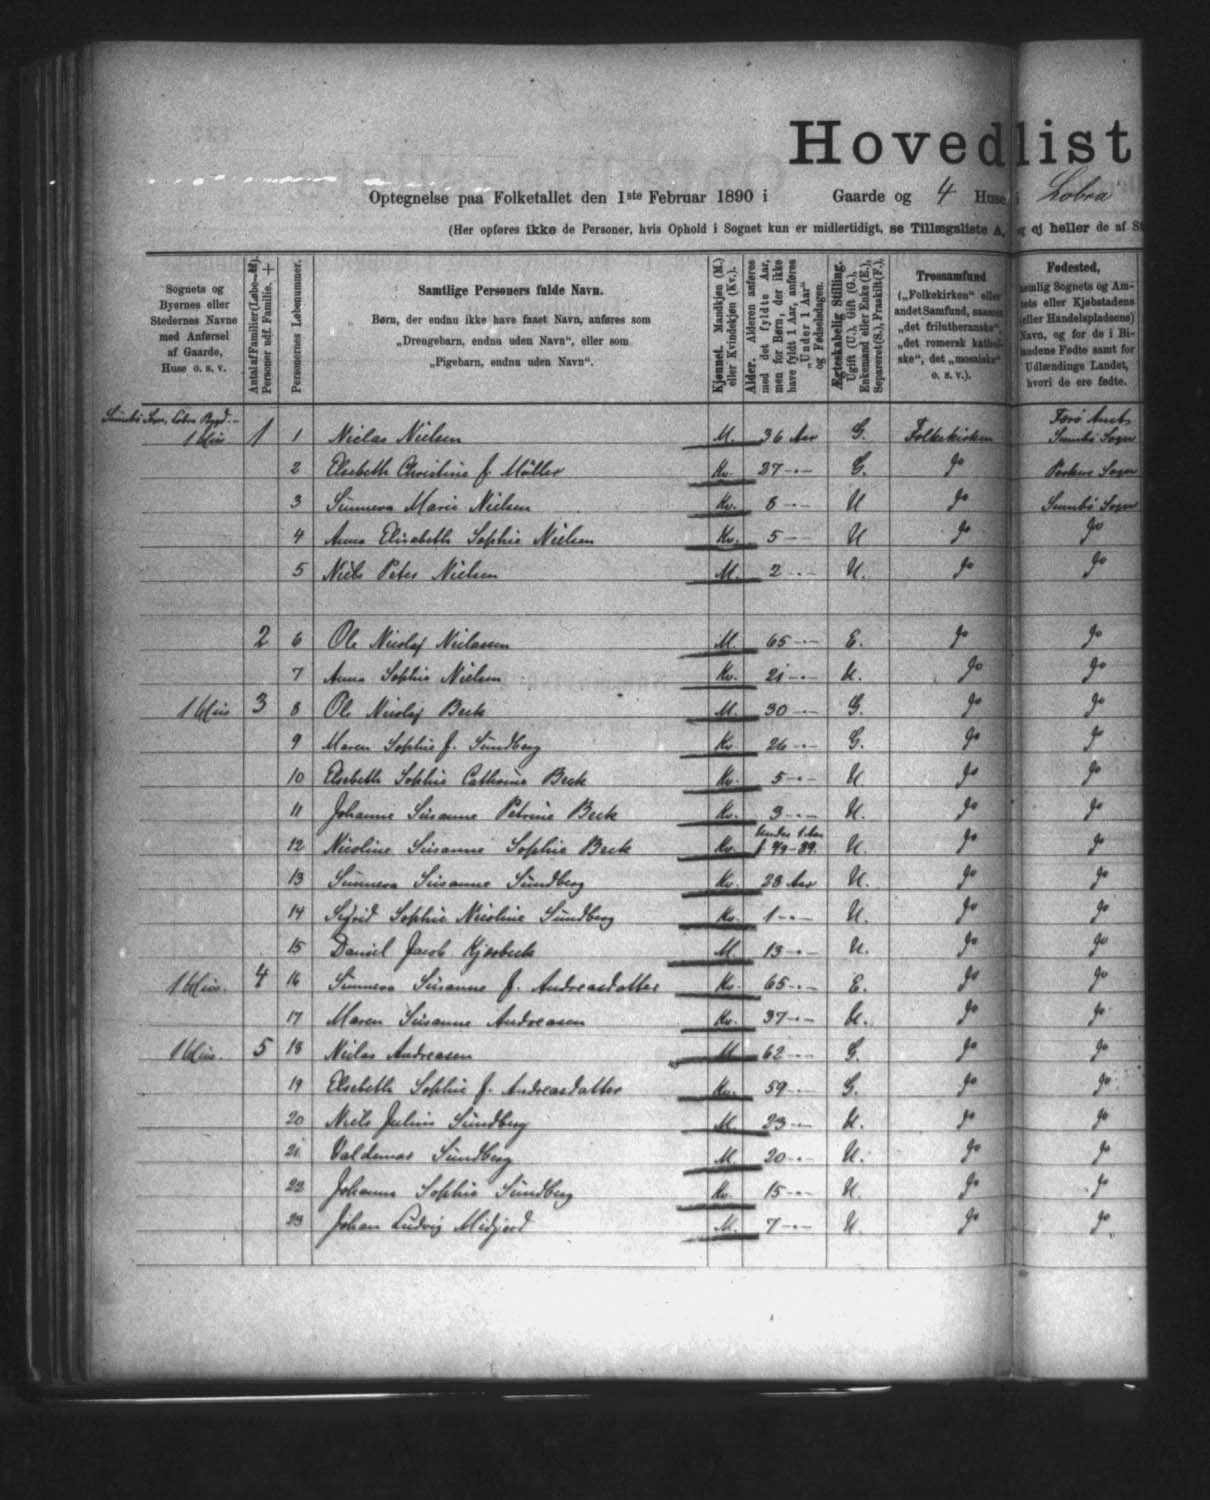 Hovedlist
Optegnelse paa Folketallet den 1ste Februar 1890 i Gaarde og 4 Huse i Lobra
(Her opføres ikke de Personer, hvis Ophold i Sognet kun er midlertidigt, se Tillægsliste A, og ej heller de af St
Sognets og Byernes eller Stedernes Navne med Anførsel af Gaarde, Huse o. s. v.
Antal af Familier (Løbe-№). Personer udf. Familie. +
Personernes Løbenummer.
Samtlige Personers fulde Navn.
Børn, der endnu ikke have faaet Navn, anføres som
„Drengebarn, endnu uden Navn“, eller som
„Pigebarn, endnu uden Navn“.
Kjønnet. Mandkjøn (M.) eller Kvindekjøn (Kv.).
Alder. Alderen anføres med det fyldte Aar, men for Børn, der ikke have fyldt 1 Aar, anføres „Under 1 Aar“ og Fødselsdagen.
Ægteskabelig Stilling. Ugift (U.), Gift (G.), Enkemand eller Enke (E.), Separeret (S.), Fraskilt (F.).
Trossamfund („Folkekirken“ eller andet Samfund, saasom „det frilutheranske“, „det romersk katholske“, det „mosaiske“ o. s. v.).
Fødested, nemlig Sognets og Amtets eller Kjøbstadens (eller Handelspladsens) Navn, og for de i Bilandene Fødte samt for Udlændinge Landet, hvori de ere fødte.
Sumbö Sogn, Lobra Bygd. Færö Amt
1 Hus 1 1 Niclas Nielsen M. 36 Aar G. Folkekirken Sumbö Sogn
2 Elsebeth Christine f. Möller Kv. 27 -"- G. do Sogn
3 Sunneva Marie Nielsen Kv. 6 -"- U do Sumbö Sogn
4 Anna Elisabeth Sophie Nielsen Kv. 5 -"- U do do
5 Niels Peter Nielsen M. 2 -"- U. do do
2 6 Ole Nicolaj Niclasen M. 65 -"- E. do do
7 Anna Sophie Nielsen Kv. 21 -"- U. do do
1 Hus 3 8 Ole Nicolaj Beck M. 30 -"- G. do do
9 Maren Sophie f. Sundberg Kv. 26 -"- G. do do
10 Elsebeth Sophie Cathrine Beck Kv. 5 -"- U do do
11 Johanne Susanne Petrine Beck Kv. 3 -"- U. do do
12 Nicoline Susanne Sophie Beck Kv. Under 1 Aar U. do do
13 Sunneva Susanne Sundberg Kv. 23 Aar U. do do
14 Sigrid Sophie Nicoline Sundberg Kv. 1 -"- U. do do
15 Daniel Jacob Kjærbeck M. 13 -"- U. do do
1 Hus. 4 16 Sunneva Susanne f. Andreasdatter Kv. 65 -"- E. do do
17 Maren Susanne Andreasen Kv. 37 -"- U. do do
1 Hus. 5 18 Niclas Andreasen M. 62 -"- G. do do
19 Elsebeth Sophie f. Andreasdatter Kv. 59 -"- G. do do
20 Niels Julius Sundberg M. 23 -"- U. do do
21 Valdemar Sundberg M. 20 -"- U. do do
22 Johanne Sophie Sundberg Kv. 15 -"- U. do do
23 Johan Ludvig Midjord M. 7 -"- U do do